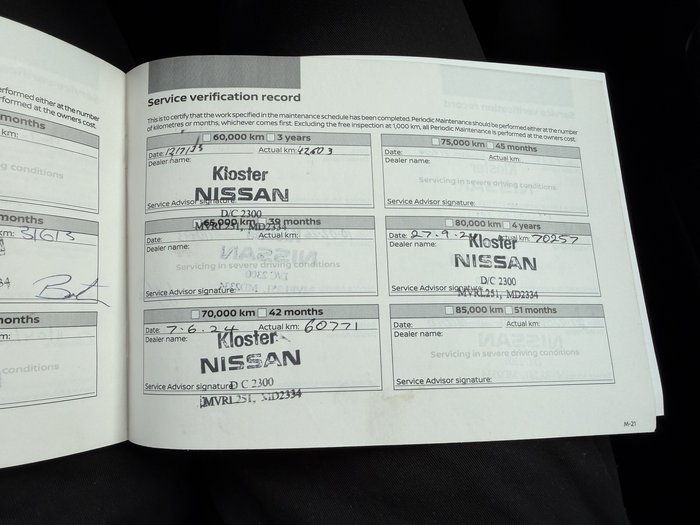 erformed either at the number
rformed at the owners cost.
months
km:
ing conditions
months
km: 31613
334
months
m:
conditions
Service verification record
This is to certify that the work specified in the maintenance schedule has been completed. Periodic Maintenance should be performed either at the number
of kilometres or months, whichever comes first. Excluding the free inspection at 1,000 km, all Periodic Maintenance is performed at the owners cost.
60,000 km 3 years
Date: Actual km: 42603
Dealer name:
Kloster
NISSAN
Service Advisor signature:
D/C 2300
MVRL251, MD2334
65,000 km 39 months
Date: Actual km:
Dealer name:
Servicing in severe driving conditions
Service Advisor signature:
70,000 km 42 months
Date: 7.6.24 Actual km: 60771
Dealer name:
Kloster
NISSAN
Service Advisor signature:
D C 2300
MVRL251, MD2334
75,000 km 45 months
Date: Actual km:
Dealer name:
Servicing in severe driving conditions
Service Advisor signature:
80,000 km 4 years
Date: 27.9.24 Actual km: 70257
Dealer name:
Kloster
NISSAN
D/C 2300
Service Advisor signature:
MVRL251, MD2334
85,000 km 51 months
Date: Actual km:
Dealer name:
Servicing in severe driving conditions
Service Advisor signature:
M-21